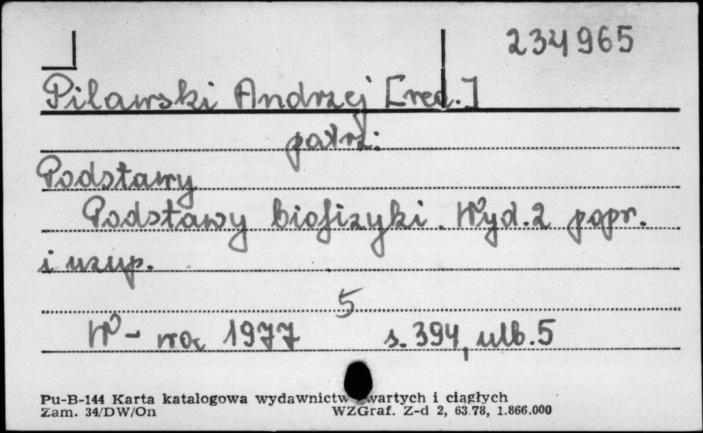 234965
Pilawski Andrzej [red.]
patrz:
Podstawy
Podstawy biofizyki. Wyd. 2 popr.
i uzup.
5
W-wa 1977 s. 394, nlb. 5
Pu-B-144 Karta katalogowa wydawnictw zwartych i ciągłych
Zam. 34/DW/On WZGraf. Z-d 2, 63.78, 1.866.000